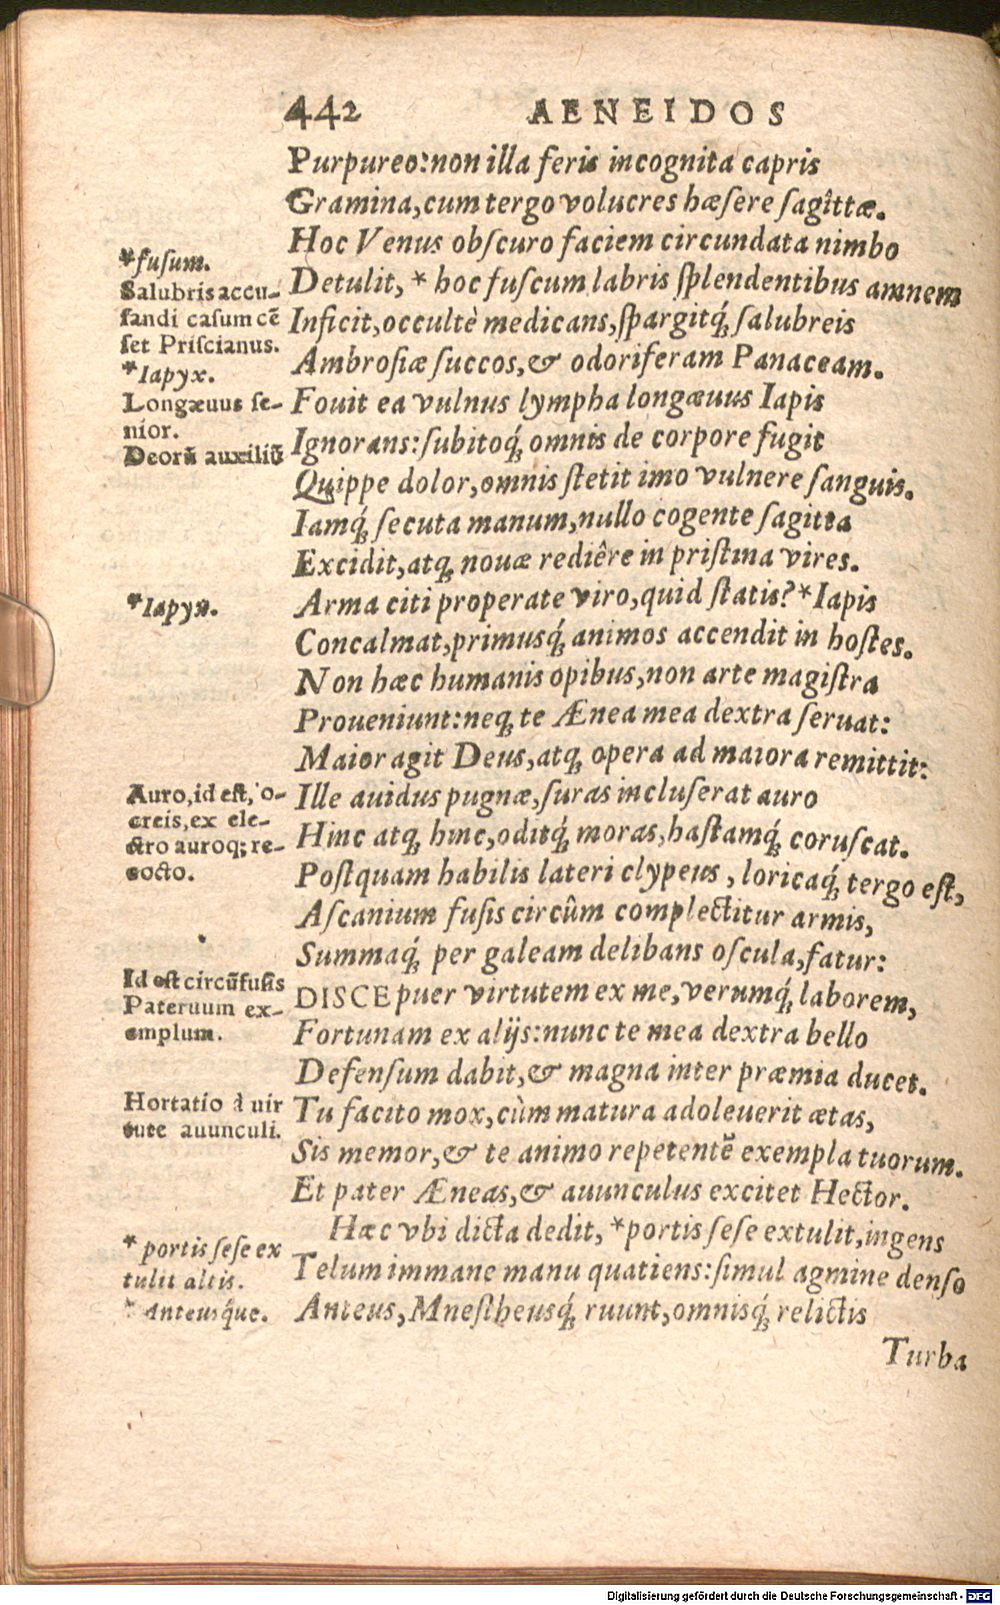 442 AENEIDOS
Purpureo:non illa feris incognita capris
Gramina,cum tergo volucres hæsere sagîttæ.
Hoc Venus obscuro faciem circundata nimbo
*fusum.
Detulit, * hoc fuscum labris splendentibus amnem
Salubris accu-
sandi casum cẽ
set Priscianus.
Inficit,occultè medicans,spargitq́; salubreis
Ambrosiæ succos,& odoriferam Panaceam.
*Iapyx.
Longæuus se-
nior.
Fouit ea vulnus lympha longæuus Iapis
Ignorans:subitoq́; omnis de corpore fugit
Deorũ auxiliũ
Quippe dolor,omnis stetit imo vulnere sanguis.
Iamq́; secuta manum,nullo cogente sagitta
Excidit,atq; nouæ rediêre in pristina vires.
*Iapyx.
Arma citi properate viro,quid statis? *Iapis
Concalmat,primusq́; animos accendit in hostes.
Non hæc humanis opibus,non arte magistra
Proueniunt:neq; te Ænea mea dextra seruat:
Maior agit Deus,atq; opera ad maiora remittit:
Auro,id est, o-
creis,ex ele-
ctro auroq; re-
cocto.
Ille auidus pugnæ,suras incluserat auro
Hinc atq; hinc,oditq́; moras,hastamq́; coruscat.
Postquam habilis lateri clypeus , loricaq́; tergo est,
Ascanium fusis circûm complectitur armis,
Summaq́; per galeam delibans oscula,fatur:
Id est circũfusis
Paternum ex-
emplum.
DISCE puer virtutem ex me,verumq́; laborem,
Fortunam ex alijs:nunc te mea dextra bello
Defensum dabit,& magna inter præmia ducet.
Hortatio à uir
tute auunculi.
Tu facito mox,cùm matura adoleuerit ætas,
Sis memor,& te animo repetentẽ exempla tuorum.
Et pater Æneas,& auunculus excitet Hector.
Hæc vbi dicta dedit, *portis sese extulit,ingens
* portis sese ex
tulit altis.
Telum immane manu quatiens:simul agmine denso
* Anteusq́ue.
Anteus,Mnestheusq́; ruunt,omnisq́; relictis
Turba
Digitalisierung gefördert durch die Deutsche Forschungsgemeinschaft - DFG